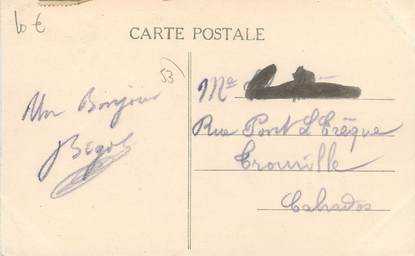 10 €
CARTE POSTALE
53
Un Bonjour
Mr
Rue Pont L'Evêque
Trouville
Calvados